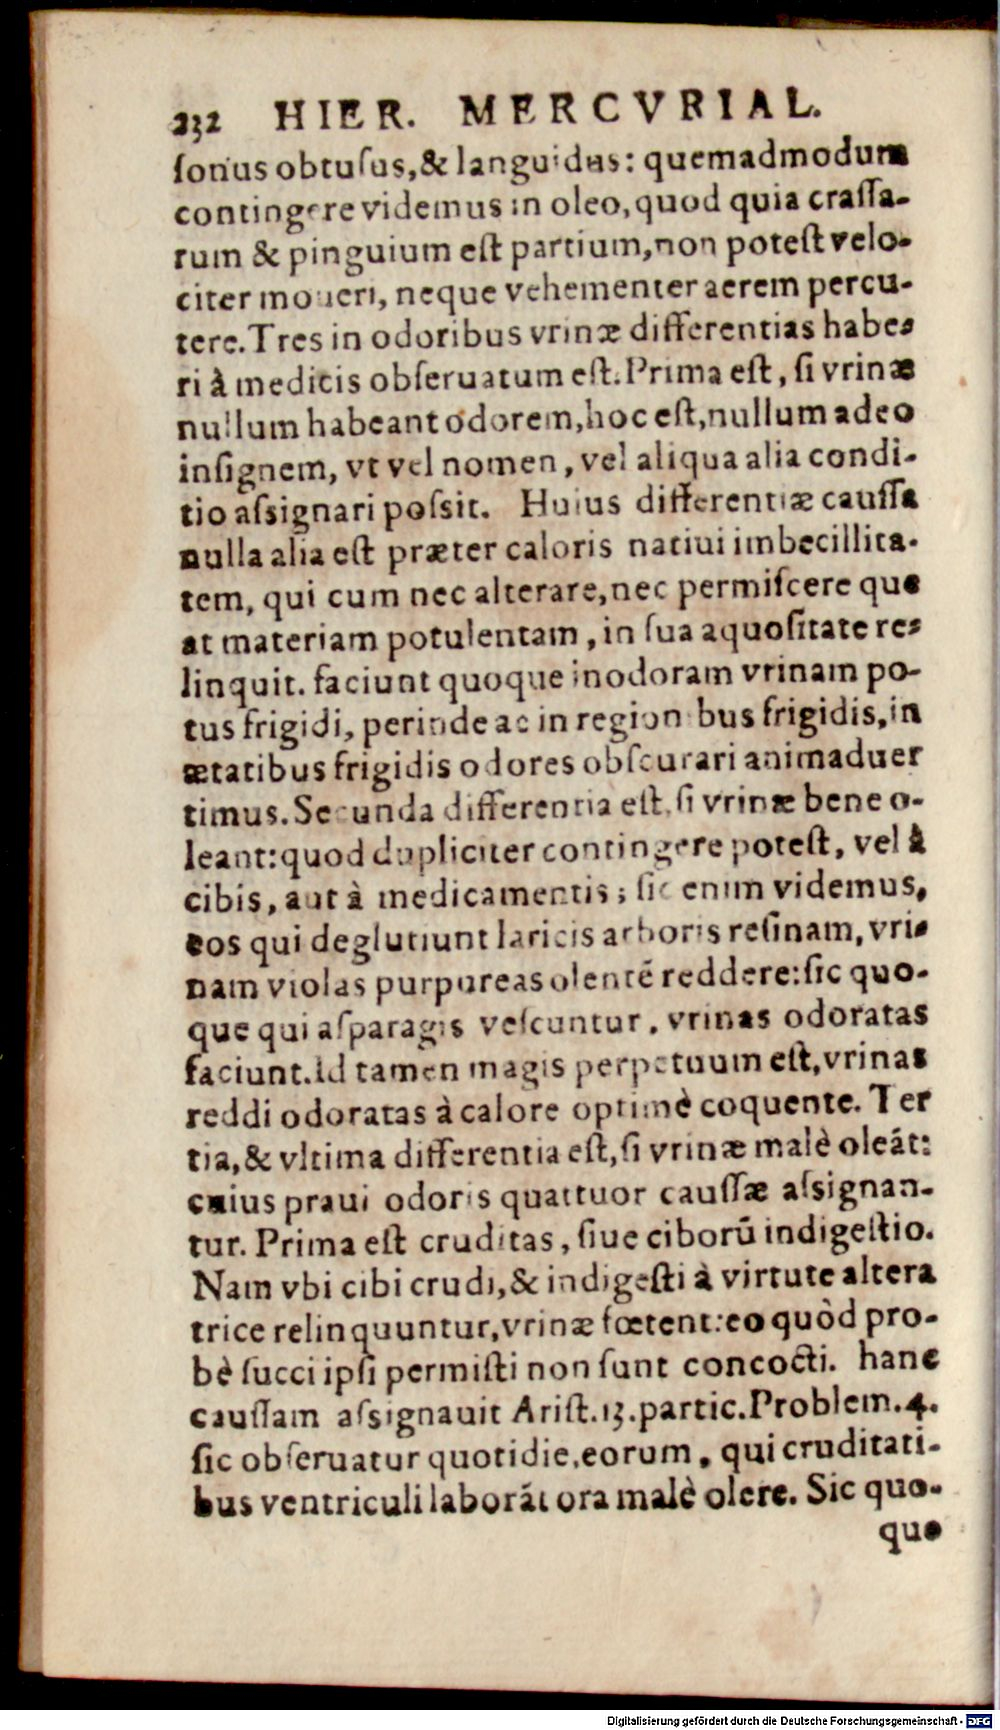 232 HIER. MERCVRIAL.
ſonus obtuſus,& languidus: quemadmodum
contingere videmus in oleo,quod quia craſſa-
rum & pinguium eſt partium,non poteſt velo-
citer moueri, neque vehementer aerem percu-
tere.Tres in odoribus vrinæ differentias habe-
ri à medicis obſeruatum eſt.Prima eſt, ſi vrinæ
nullum habeant odorem,hoc eſt,nullum adeo
inſignem, vt vel nomen, vel aliqua alia condi-
tio aſsignari poſsit. Huius differentiæ cauſſa
nulla alia eſt præter caloris natiui imbecillita-
tem, qui cum nec alterare,nec permiſcere que
at materiam potulentam, in ſua aquoſitate re-
linquit. faciunt quoque inodoram vrinam po-
tus frigidi, perinde ac in regionibus frigidis,in
ætatibus frigidis odores obſcurari animaduer
timus.Secunda differentia eſt,ſi vrinæ bene o-
leant:quod dupliciter contingere poteſt, vel à
cibis, aut à medicamentis; ſic enim videmus,
eos qui deglutiunt laricis arboris reſinam, vri-
nam violas purpureas olentē reddere:ſic quo-
que qui aſparagis veſcuntur, vrinas odoratas
faciunt.Id tamen magis perpetuum eſt,vrinas
reddi odoratas à calore optimè coquente. Ter
tia,& vltima differentia eſt,ſi vrinæ malè oleāt:
cuius praui odoris quattuor cauſſæ aſsignan-
tur. Prima eſt cruditas, ſiue ciborū indigeſtio.
Nam vbi cibi crudi,& indigeſti à virtute altera
trice relinquuntur,vrinæ fœtent:eo quòd pro-
bè ſucci ipſi permiſti non ſunt concocti. hanc
cauſſam aſsignauit Ariſt.13.partic.Problem.4.
ſic obſeruatur quotidie,eorum, qui cruditati-
bus ventriculi laborāt ora malè olere. Sic quo-
que
Digitalisierung gefördert durch die Deutsche Forschungsgemeinschaft - DFG